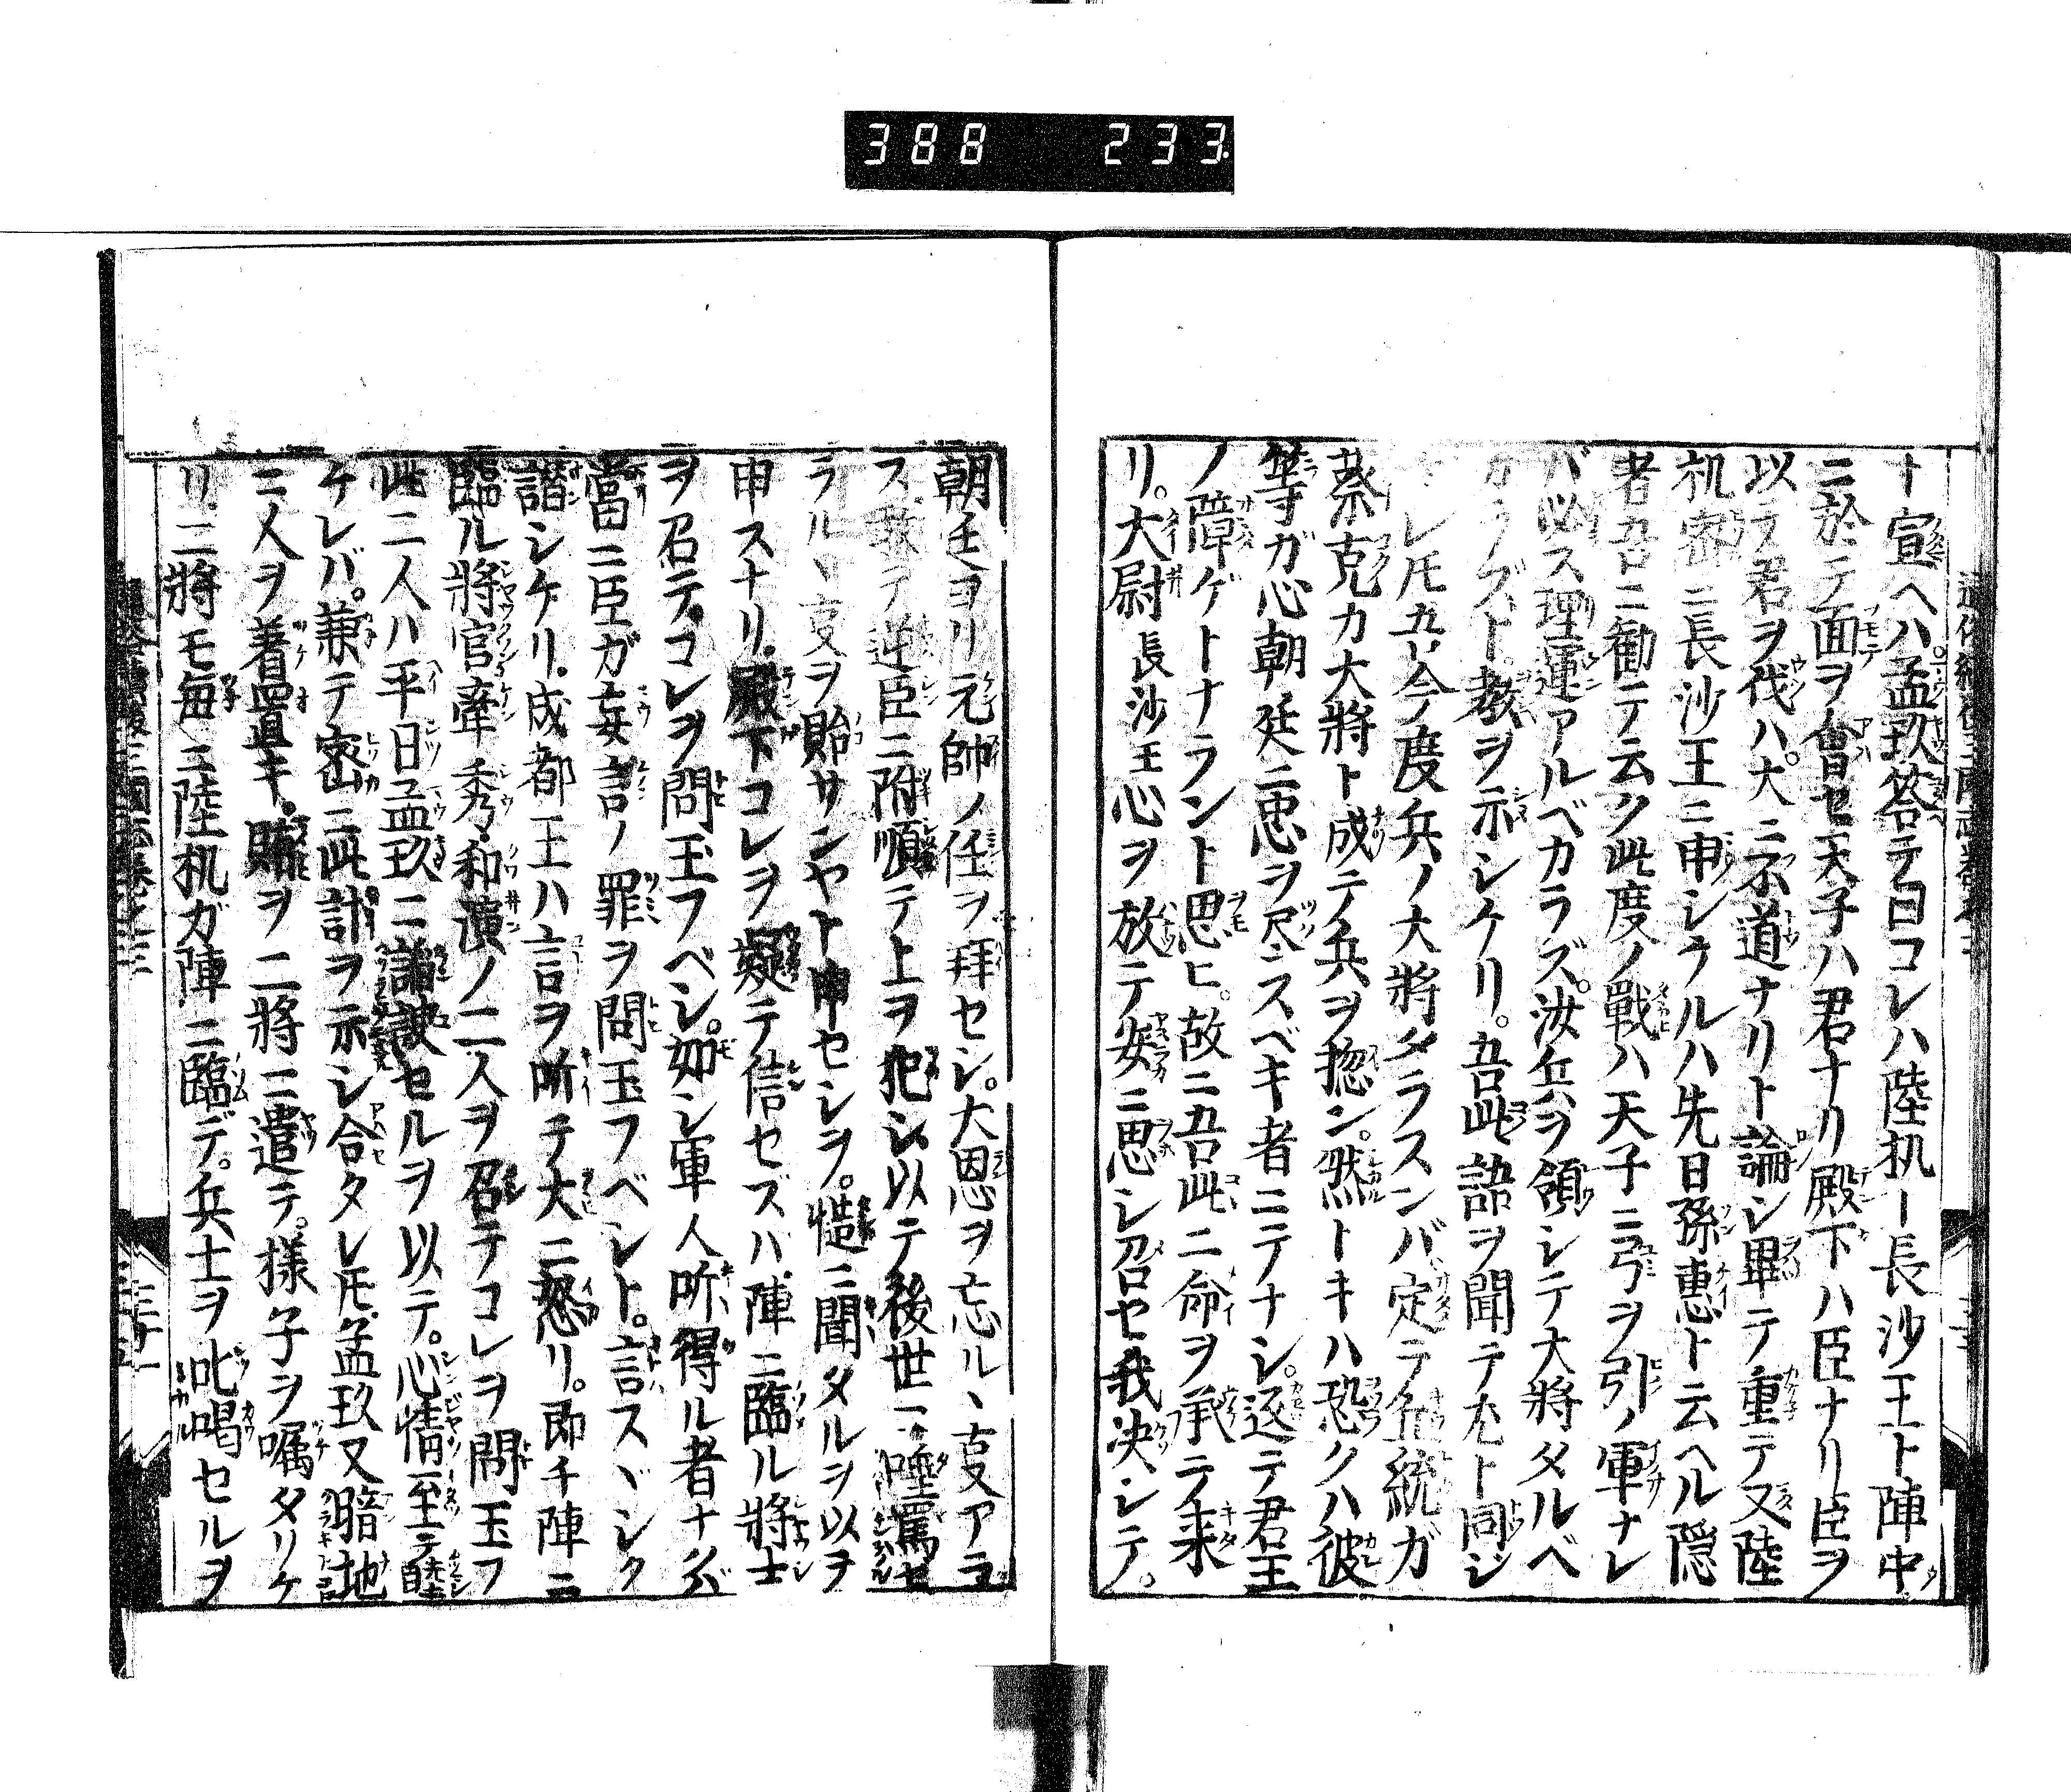 388 233
ト宣ヘハ孟玖答テ曰コレハ陸机ー長沙王ト陣中
ニ於テ面ヲ會セ天子ハ君ナリ殿下ハ臣ナリ臣ヲ
以テ君ヲ伐ハ。大ニ不道ナリト論シ畢テ重テ又陸
机密ニ長沙王ニ申シケルハ先日孫惠ト云ヘル隠
者吾ニ勧テ云ク此度ノ戰ハ天子ニ弓ヲ引ノ軍ナレ
バ必ス理運アルベカラズ。汝兵ヲ領シテ大將タルベ
カラズト教ヲ示シケリ。吾此語ヲ聞テ尤ト同ジ
レ𪜈今度兵ノ大將タラスンバ定テ統ガ
蔡克カ大將ト成テ兵ヲ惣ン。然トキハ恐クハ彼
等ガ心朝廷ニ忠ヲ尽スベキ者ニテナシ。返テ君王
ノ障ゲトナラント思ヒ。故ニ吾此ニ命ヲ承テ来
リ。大尉長沙王心ヲ放テ安ニ思シ召セ我决シテ。
朝廷ヨリ元帥ノ任ヲ拜セシ。大恩ヲ忘ル、㕝アラ
ス敢テ逆臣ニ附順テ上ヲ犯シ以テ後世ニ唾罵セ
ラル、㕝ヲ貽サンヤト申セシヲ。慥ニ聞タルヲ以ヲ
申スナリ。殿下コレヲ疑テ信セズハ陣ニ臨ル將士
ヲ召テ。コレヲ問玉フベシ。如シ軍人所得ル者ナクバ
當ニ臣ガ妄言ノ罪ヲ問玉フベシト。言スヽシク
譖シケリ。成都王ハ言ヲ听テ大ニ怒リ。即チ陣ニ
臨ル將官牽秀和演ノ二人ヲ召テコレヲ問玉フ
此二人ハ平日孟玖ニ諂諛セルヲ以テ。心情至テ睦
ケレバ。兼テ密ニ此計ヲ示シ合タレ𪜈孟玖又暗地
ニ人ヲ着置キ。賂ヲ二將ニ遣テ。様子ヲ嘱タリケ
リ。二將モ毎ニ陸机ガ陣ニ臨デ。兵士ヲ叱喝セルヲ